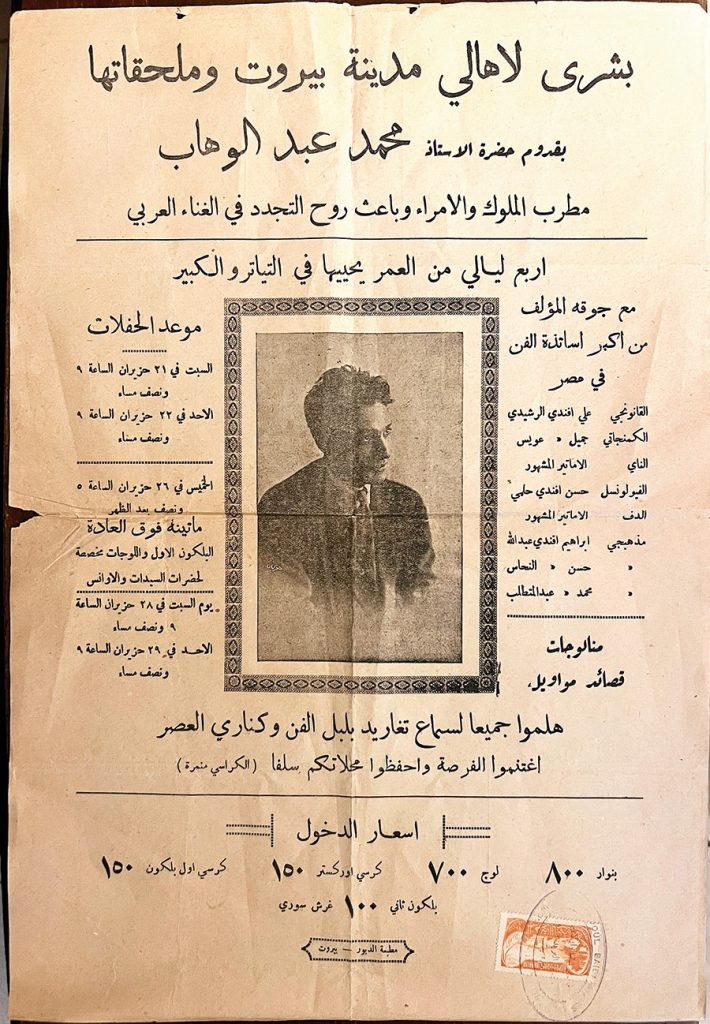 بشرى لاهالي مدينة بيروت وملحقاتها
بقدوم حضرة الاستاذ محمد عبد الوهاب
مطرب الملوك والامراء وباعث روح التجدد في الغناء العربي
اربع ليالي من العمر يحييها في التياترو الكبير
مع جوقه المؤلف
من أكبر اساتذة الفن
في مصر
القانونجي علي افندي الرشيدي
الكمنجاتي جميل » عويس
الناي الاماتير المشهور
الفيولونسل حسن افندي حلمي
الدف الاماتير المشهور
مذهبجي ابراهيم افندي عبدالله
» حسن » النحاس
» محمد » عبدالمتطلب
منالوجات
قصائد مواويل
موعد الحفلات
السبت في ٢١ حزيران الساعة ٩
ونصف مساء
الاحد في ٢٢ حزيران الساعة ٩
ونصف مساء
الخميس في ٢٦ حزيران الساعة ٥
ونصف بعد الظهر
ماتينه فوق العادة
البلكون الاول واللوجات مخصصة
لحضرات السيدات والاوانس
يوم السبت في ٢٨ حزيران الساعة
٩ ونصف مساء
الاحد في ٢٩ حزيران الساعة ٩
ونصف مساء
هلموا جميعا لسماع تغاريد بلبل الفن وكناري العصر
اغتنموا الفرصة واحفظوا محلاتكم سلفا (الكراسي منمرة)
اسعار الدخول
بنوار ٨٠٠ لوج ٧٠٠ كرسي اوركستر ١٥٠ كرسي اول بلكون ١٥٠
بلكون ثاني ١٠٠ غرش سوري
مطبعة الدبور — بيروت